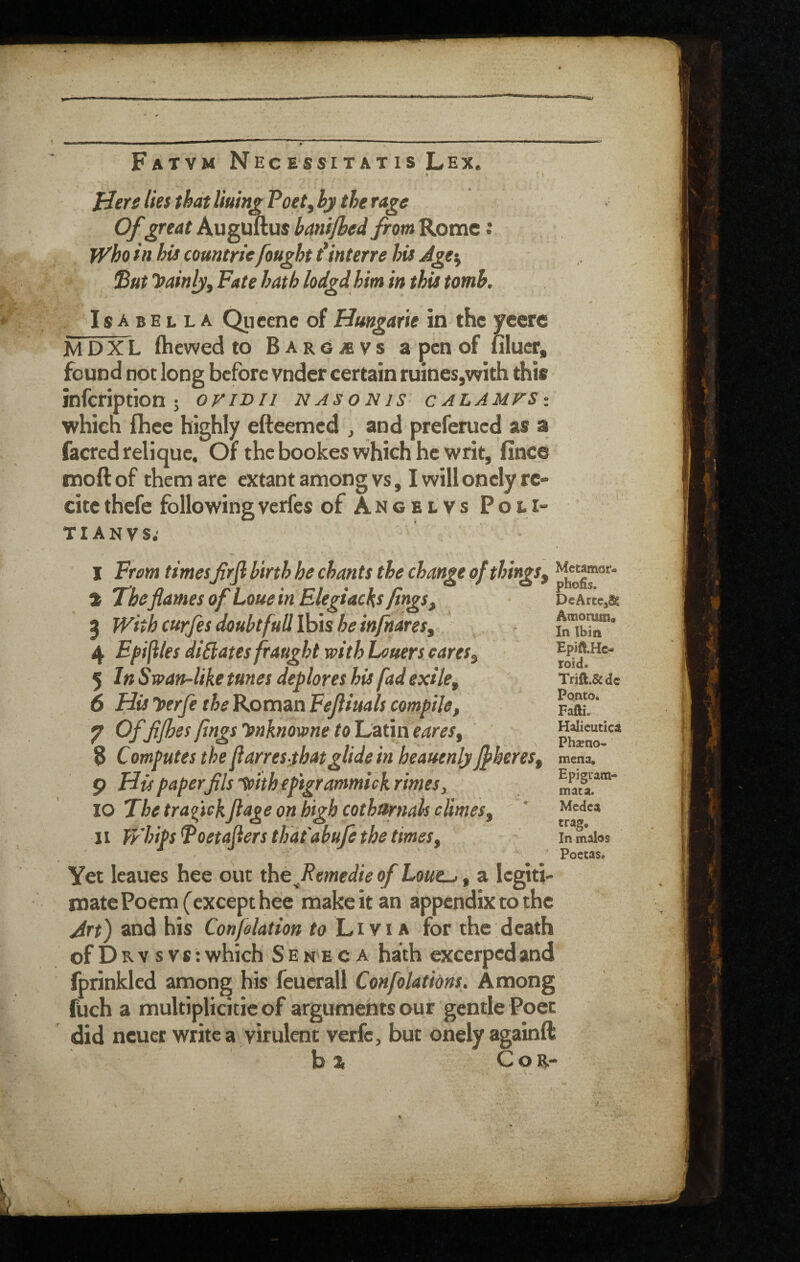 FATVM NECESSITATIS LEX.
Here lies that liuing Poet, by the rage
Of great Auguſtus baniſhed from Rome:
Who in his countrie ſought t'interre his Age;
But vainly, Fate hath lodgd him in this tomb.
ISABELLA Queene of Hungarie in the yeere
MDXL ſhewed to BARGÆVS a pen of ſiluer,
found not long before vnder certain ruines, with this
inſcription; OVIDII NASONIS CALAMVS:
which ſhee highly eſteemed, and preſerued as a
ſacred relique. Of the bookes which he writ, ſince
moſt of them are extant among vs, I will onely re-
cite theſe following verſes of ANGELVS POLI-
TIANVS.
1 From times firſt birth he chants the change of things, Metamor-
phoſis.
2 The flames of Loue in Elegiacks ſings, De Arte, &
Amorum.
3 With curſes doubtfull Ibis he inſnares, In Ibin
4 Epiſtles dictates fraught with Louers cares, Epiſt. He-
roid.
5 In Swan-like tunes deplores his ſad exile, Triſt. & de
Ponto.
6 His verſe the Roman Feſtiuals compile, Faſti.
7 Of fiſhes ſings vnknowne to Latin eares, Halieutica
8 Computes the ſtarres that glide in heauenly ſpheres, Phæno-
mena.
9 His paper fils with epigrammick rimes, Epigram-
mata.
10 The tragick ſtage on high cothurnals climes, Medea
trag.
11 Whips Poetaſters that abuſe the times, In malos
Poetas.
Yet leaues hee out the Remedie of Loue, a legiti-
mate Poem (except hee make it an appendix to the
Art) and his Conſolation to LIVIA for the death
of DRVSVS: which SENECA hath excerped and
ſprinkled among his ſeuerall Conſolations. Among
ſuch a multiplicitie of arguments our gentle Poet
did neuer write a virulent verſe, but onely againſt
b 2 COR-